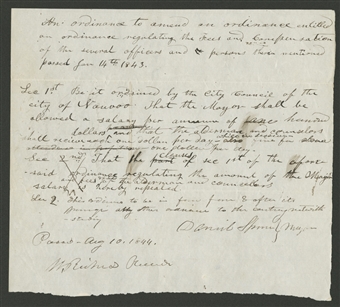 An ordinance to amend an ordinance entitled
an ordinance regulating the Fees and Compensation
of the several officers and persons therein mentioned
passed Jan 14th 1843.
Sec 1st Be it ordained by the City Council of the
city of Nauvoo That the Mayor shall be
allowed a salary per annum of hundred
dollars, and that the aldermen and counselors
shall receive each one dollar per day
Sec 2nd That the clauses of sec 1st of the afore-
said ordinance regulating the amount of the Mayor's
salary the aldermen and counselors
is hereby repealed
Sec 2 This ordinance to be in force from & after its
passage any other ordinance to the contrary notwith
standing
Daniel Spencer Mayor
Passed Aug 10. 1844.
W. Richards Recorder